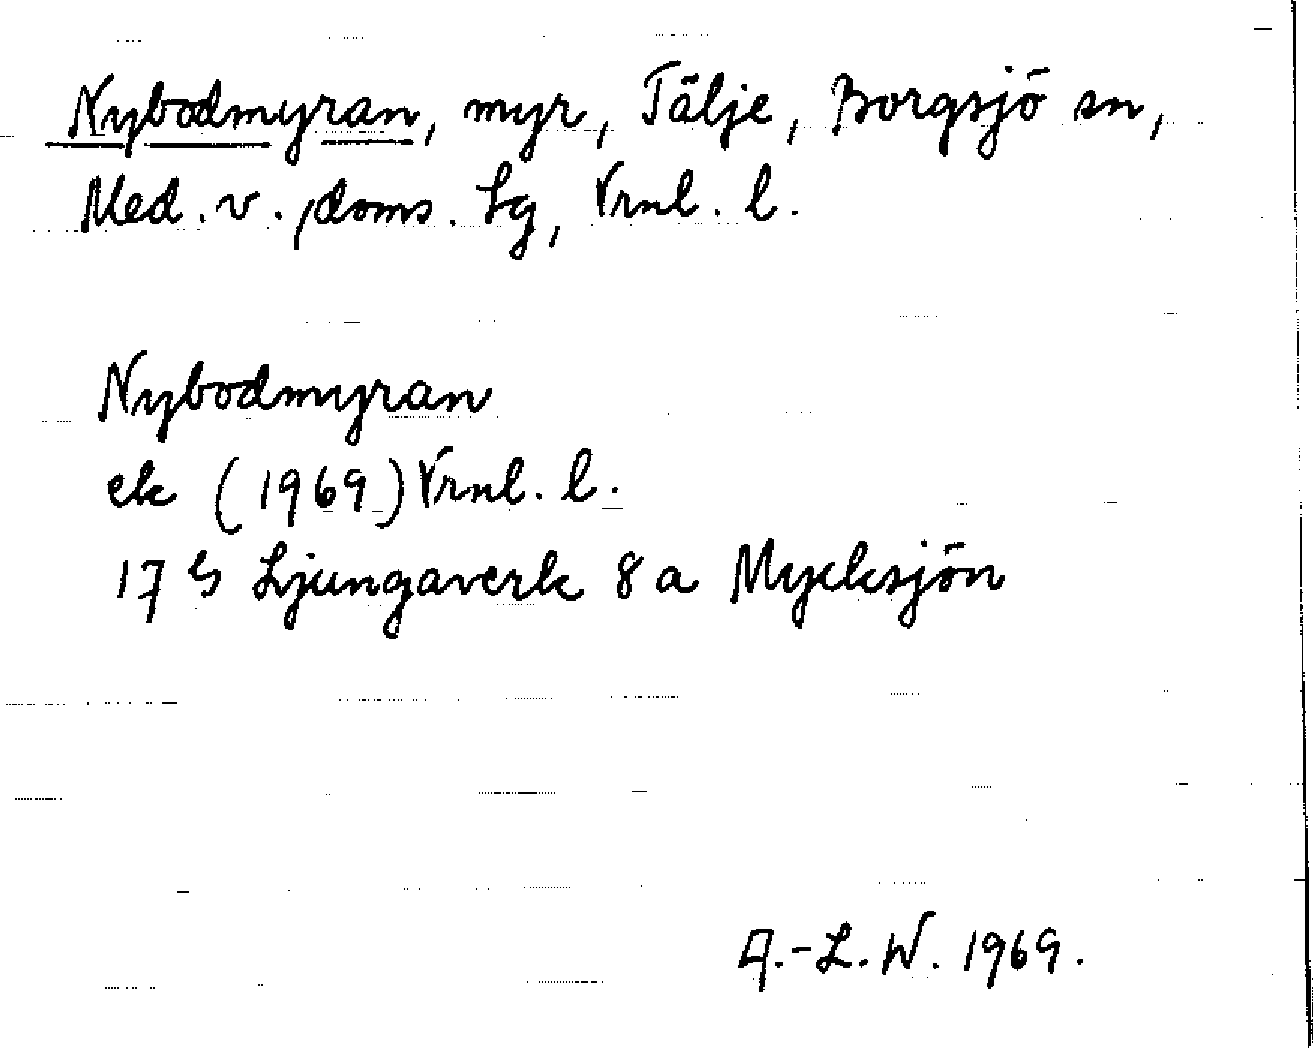 Nybodmyran, myr, Tälje, Borgsjö sn,
Med. v. doms. lg, Vrnl. l.
Nybodmyran
ek (1969) Vrnl. l.
17 G Ljungaverk 8 a Mycksjön
A.-L. W. 1969.